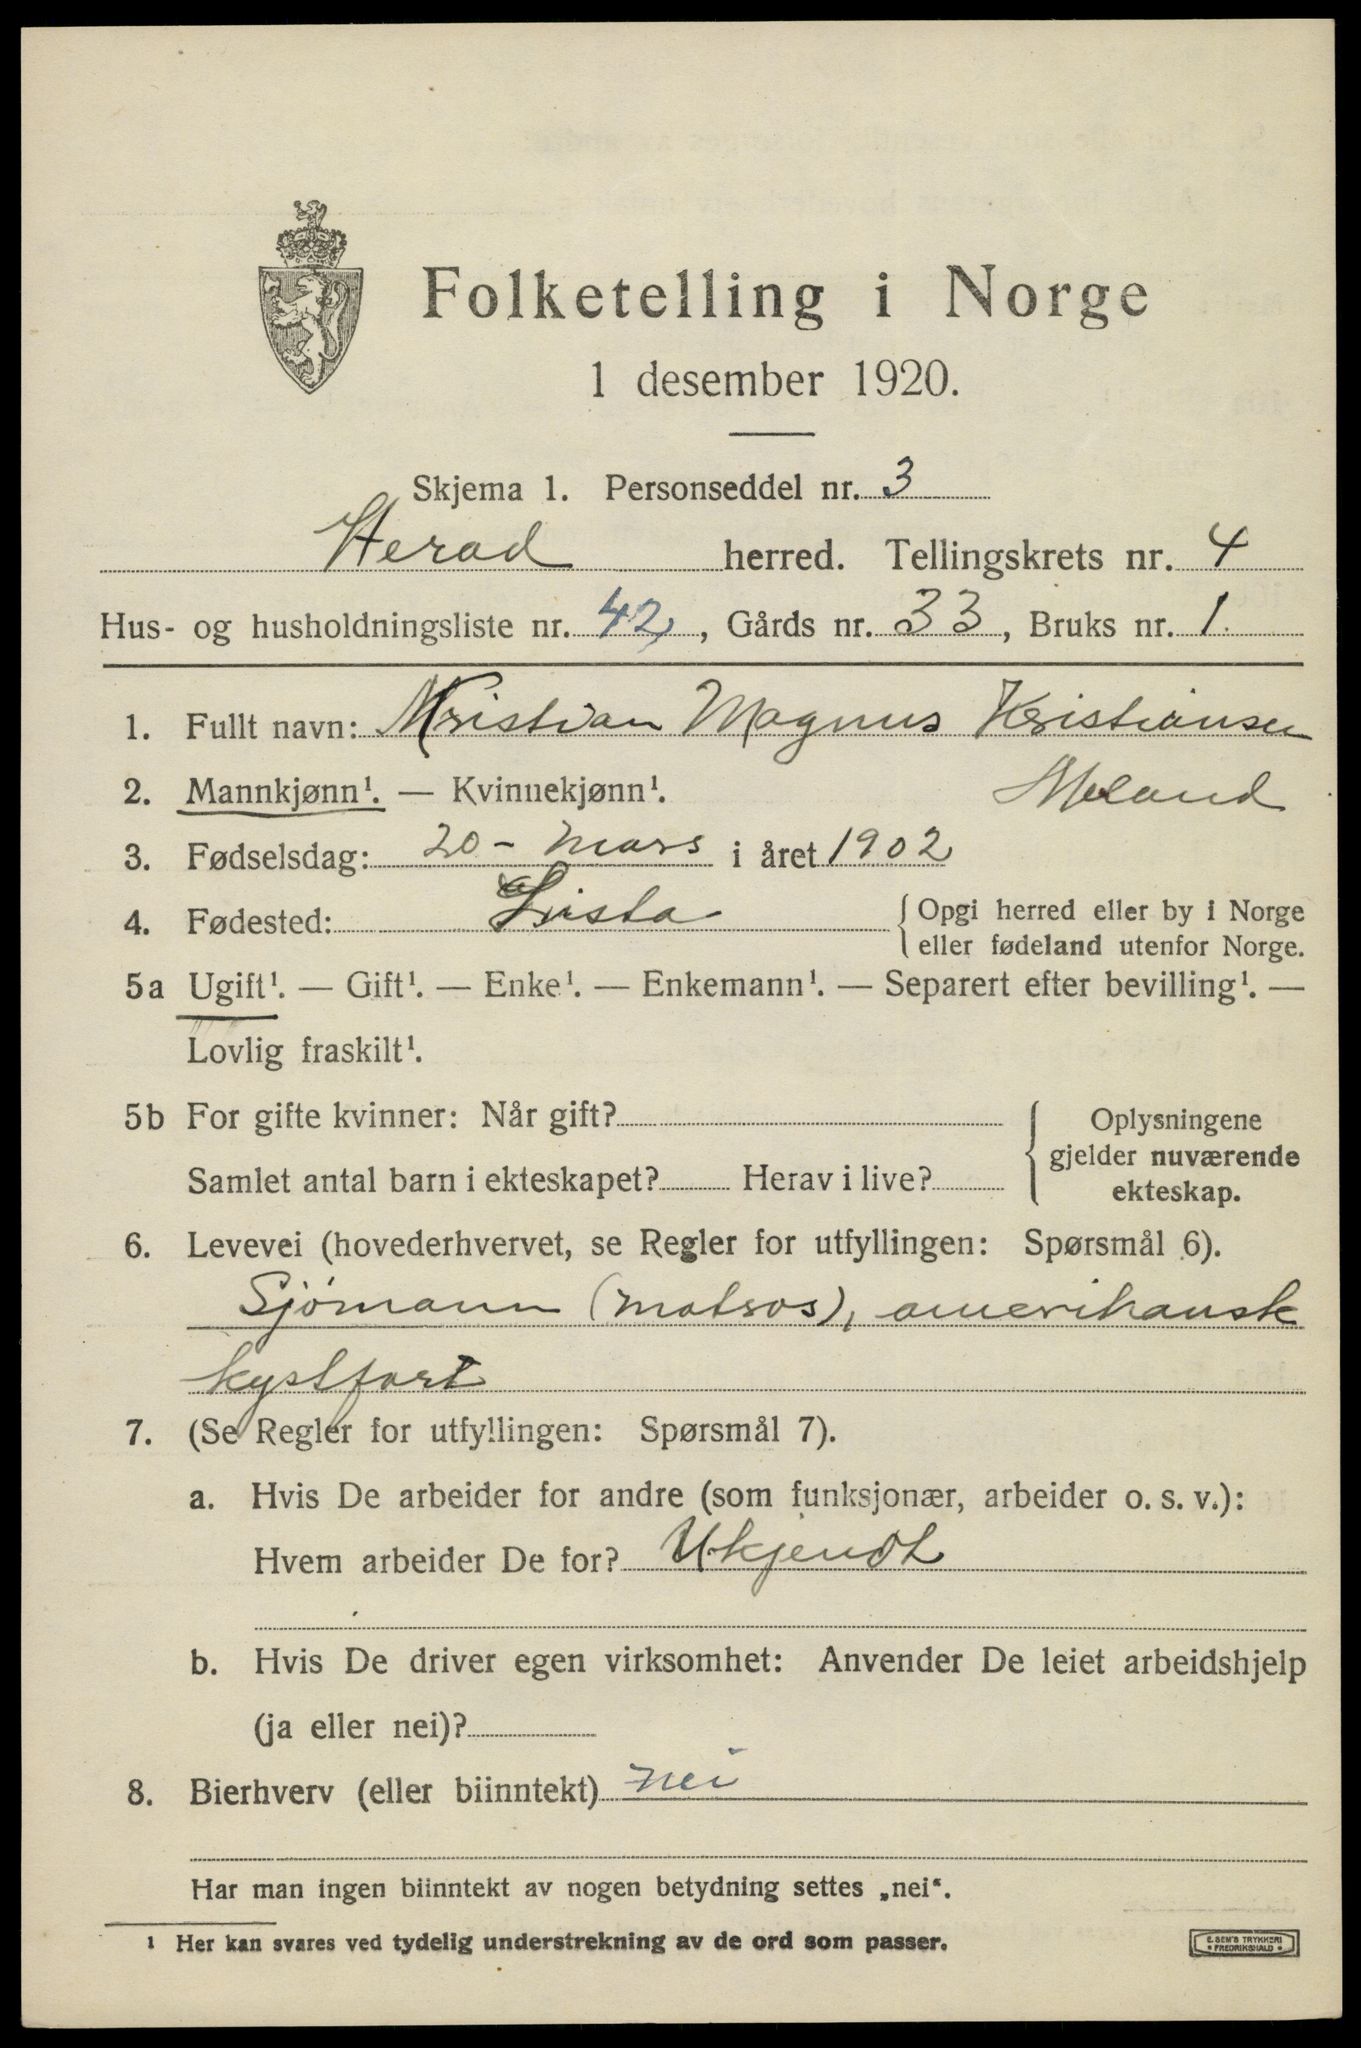 Folketelling i Norge
1 desember 1920.
Skjema 1. Personseddel nr. 3
Herad herred. Tellingskrets nr. 4
Hus- og husholdningsliste nr. 42, Gårds nr. 33, Bruks nr. 1.
1. Fullt navn: Kristian Magnus Kristiansen
2. Mannkjønn¹. — Kvinnekjønn¹. Meland
3. Fødselsdag: 20 - mars i året 1902
4. Fødested: Lista { Opgi herred eller by i Norge
eller fødeland utenfor Norge.
5a Ugift¹. — Gift¹. — Enke¹. — Enkemann¹. — Separert efter bevilling¹. —
Lovlig fraskilt¹.
5b For gifte kvinner: Når gift? { Oplysningene
gjelder nuværende
Samlet antal barn i ekteskapet? Herav i live? ekteskap.
6. Levevei (hovederhvervet, se Regler for utfyllingen: Spørsmål 6).
Sjømann (matros), amerikansk
kystfart
7. (Se Regler for utfyllingen: Spørsmål 7).
a. Hvis De arbeider for andre (som funksjonær, arbeider o. s. v.):
Hvem arbeider De for? Ukjendt
b. Hvis De driver egen virksomhet: Anvender De leiet arbeidshjelp
(ja eller nei)?
8. Bierhverv (eller biinntekt) nei
Har man ingen biinntekt av nogen betydning settes „nei“.
¹ Her kan svares ved tydelig understrekning av de ord som passer.
E. SEM'S TRYKKERI
• FREDRIKSHALD •